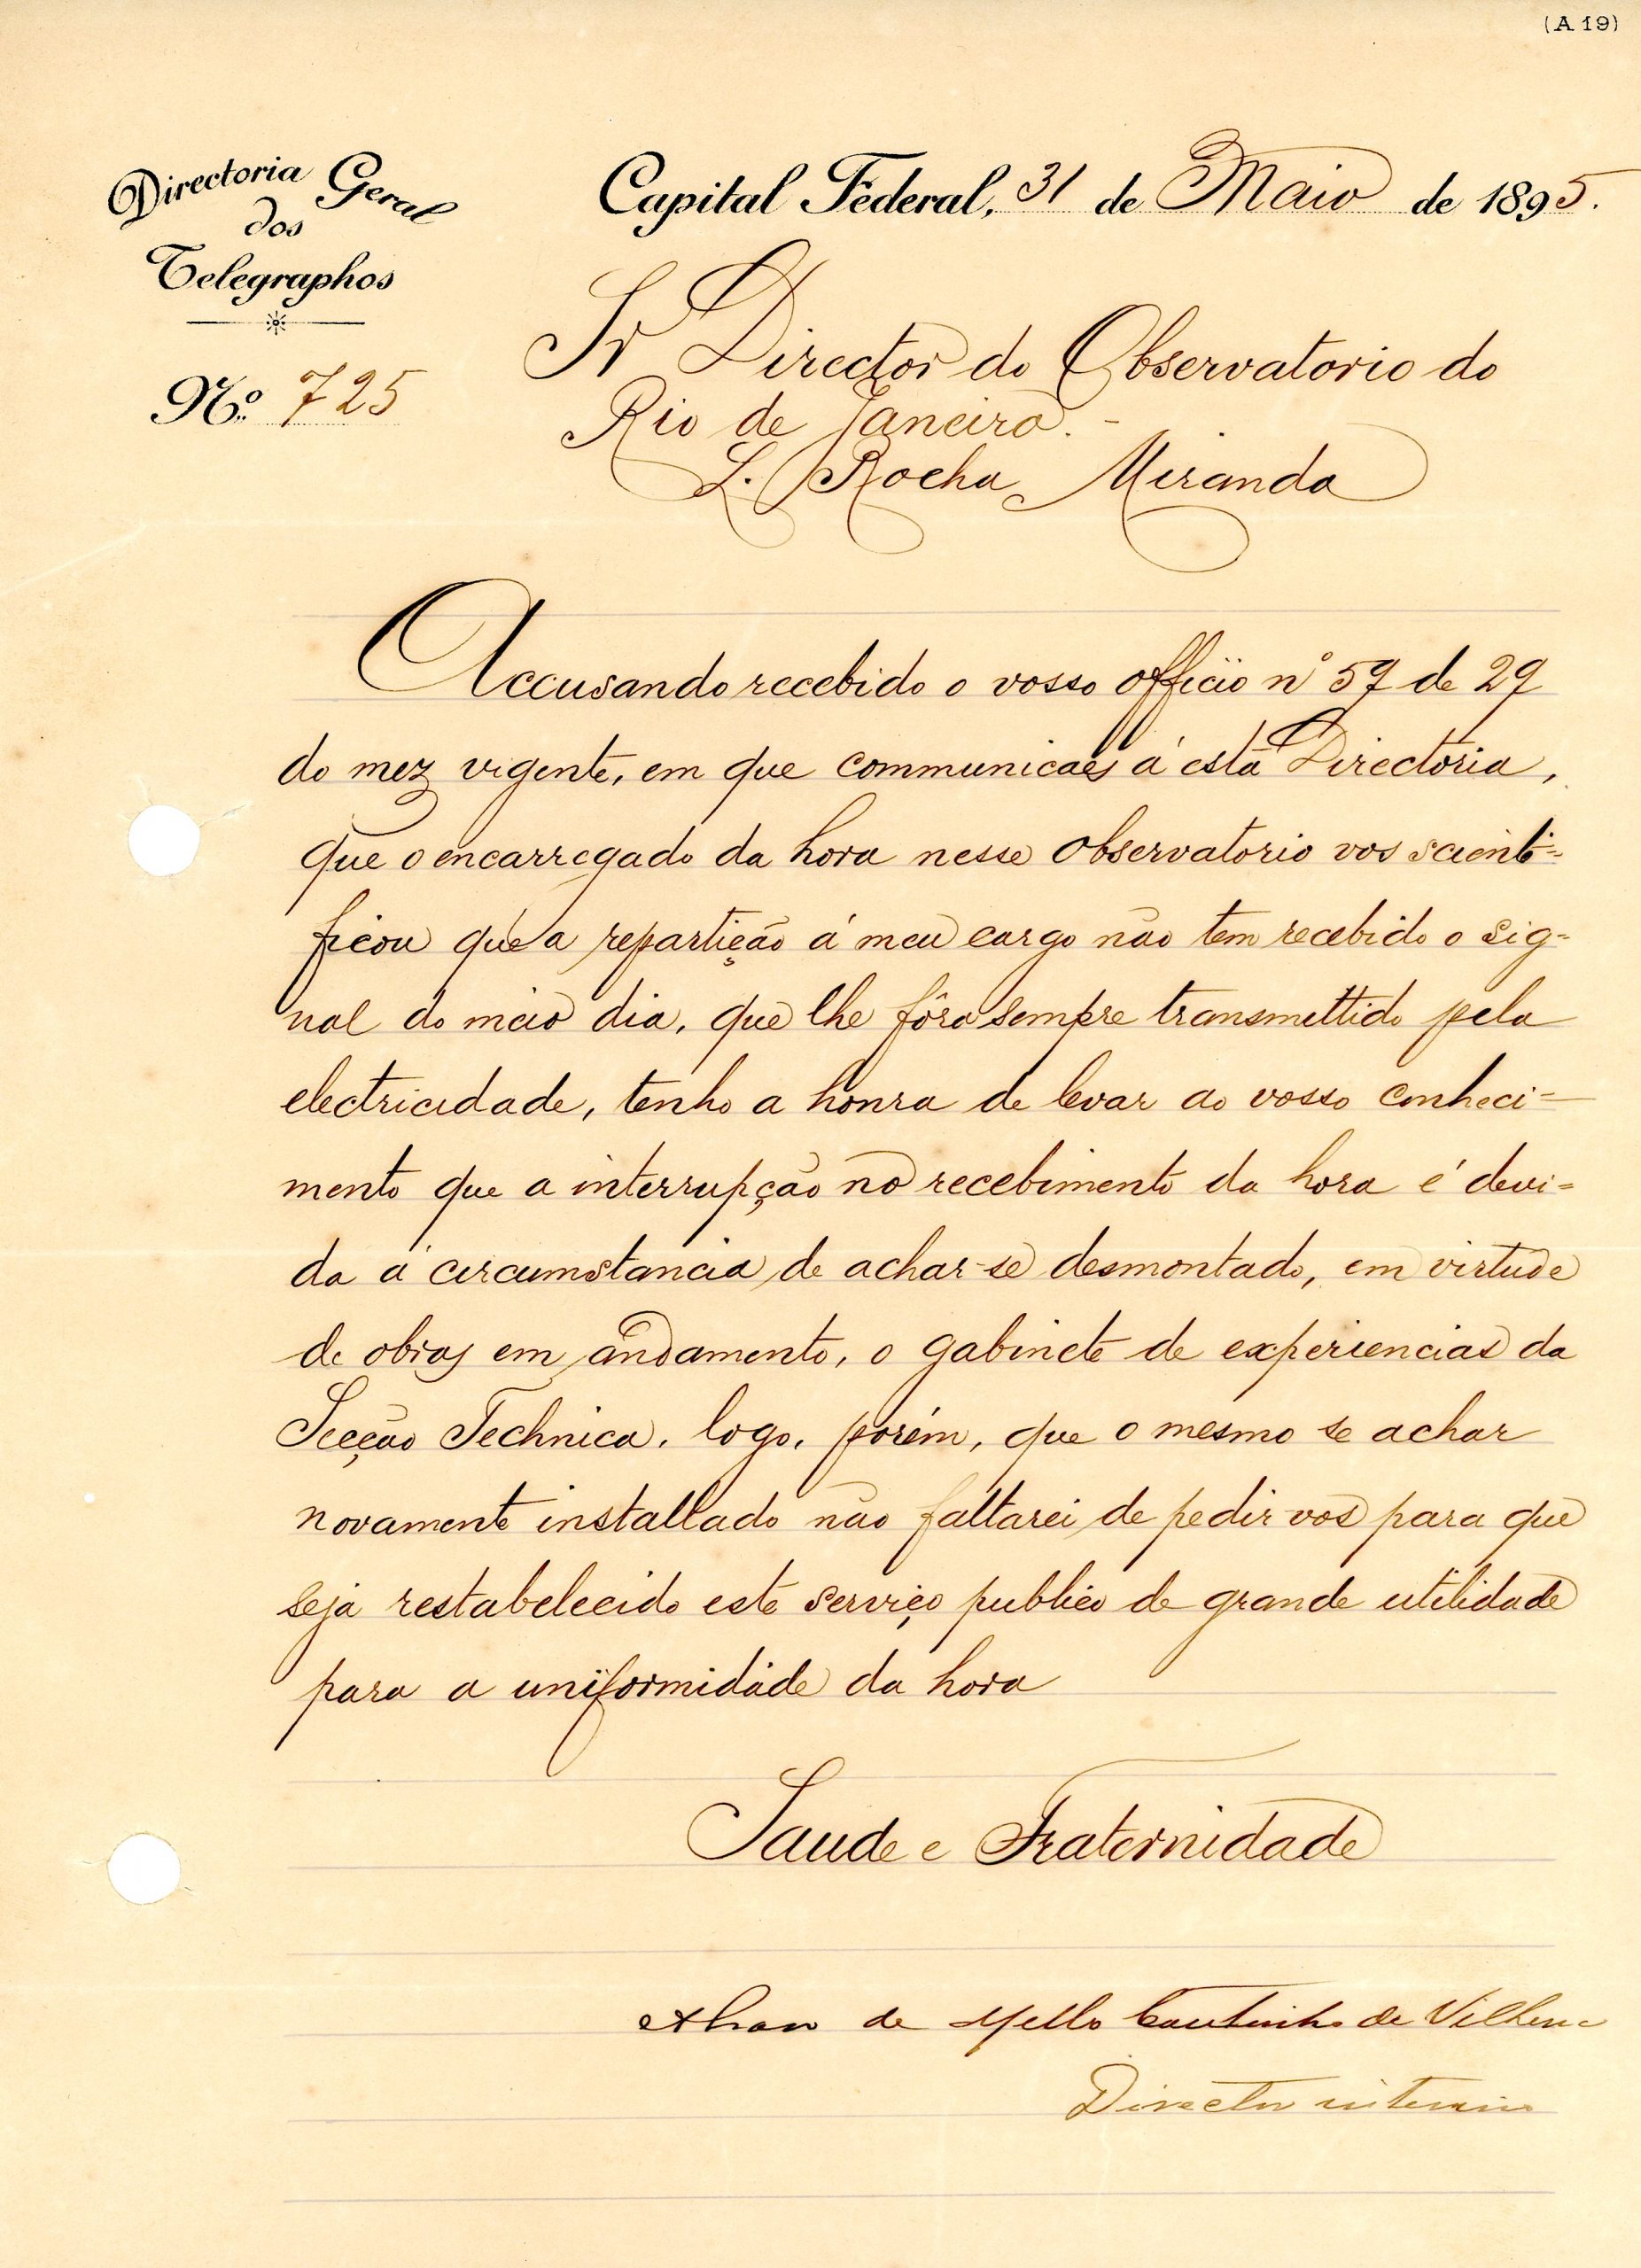 (A 19)
Directoria Geral
dos
Telegraphos
Nº 725
Capital Federal, 31 de Maio de 1895.
Sr Director do Observatorio do
Rio de Janeiro. -
L. Rocha Miranda
Accusando recebido o vosso officio nº 59 de 29
do mez vigente, em que communicaes á esta Directoria,
que o encarregado da hora nesse Observatorio vos scienti=
ficou que a repartição á meu cargo não tem recebido o sig=
nal do meio dia, que lhe fôra sempre transmettido pela
electricidade, tenho a honra de levar ao vosso conheci=
mento que a interrupção no recebimento da hora é devi=
da á circumstancia de achar-se desmontado, em virtude
de obras em andamento, o gabinete de experiencias da
Secção Technica, logo, porém, que o mesmo se achar
novamente installado não faltarei de pedir-vos para que
seja restabelecido este serviço publico de grande utilidade
para a uniformidade da hora
Saude e Fraternidade
de Mello Coutinho de Vilhena
Director interino